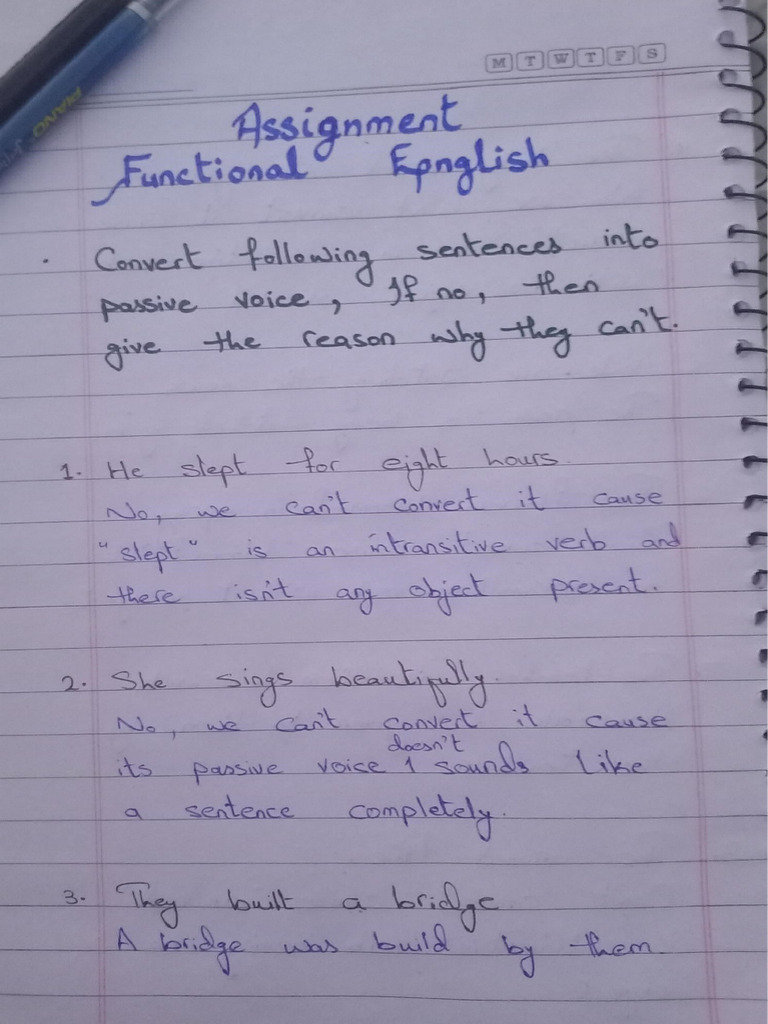 PIANO
M T W T F S
Assignment
Functional Epnglish
. Convert following sentences into
passive voice, If no, then
give the reason why they can't.
1. He slept for eight hours.
No, we can't convert it cause
"slept" is an intransitive verb and
there isn't any object present.
2. She sings beautifully.
No, we can't convert it cause
doesn't
its passive voice 1 sounds like
a sentence completely.
3. They built a bridge
A bridge was build by them.